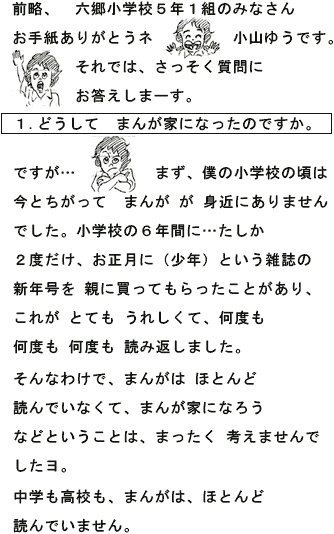 前略、　六郷小学校５年１組のみなさん
お手紙ありがとうネ　小山ゆうです。
それでは、さっそく質問に
お答えしまーす。
１．どうして　まんが家になったのですか。
ですが…　まず、僕の小学校の頃は
今とちがって　まんが　が　身近にありません
でした。小学校の６年間に…たしか
２度だけ、お正月に（少年）という雑誌の
新年号を　親に買ってもらったことがあり、
これが　とても　うれしくて、何度も
何度も　何度も　読み返しました。
そんなわけで、まんがは　ほとんど
読んでいなくて、まんが家になろう
などということは、まったく　考えませんで
したヨ。
中学も高校も、まんがは、ほとんど
読んでいません。